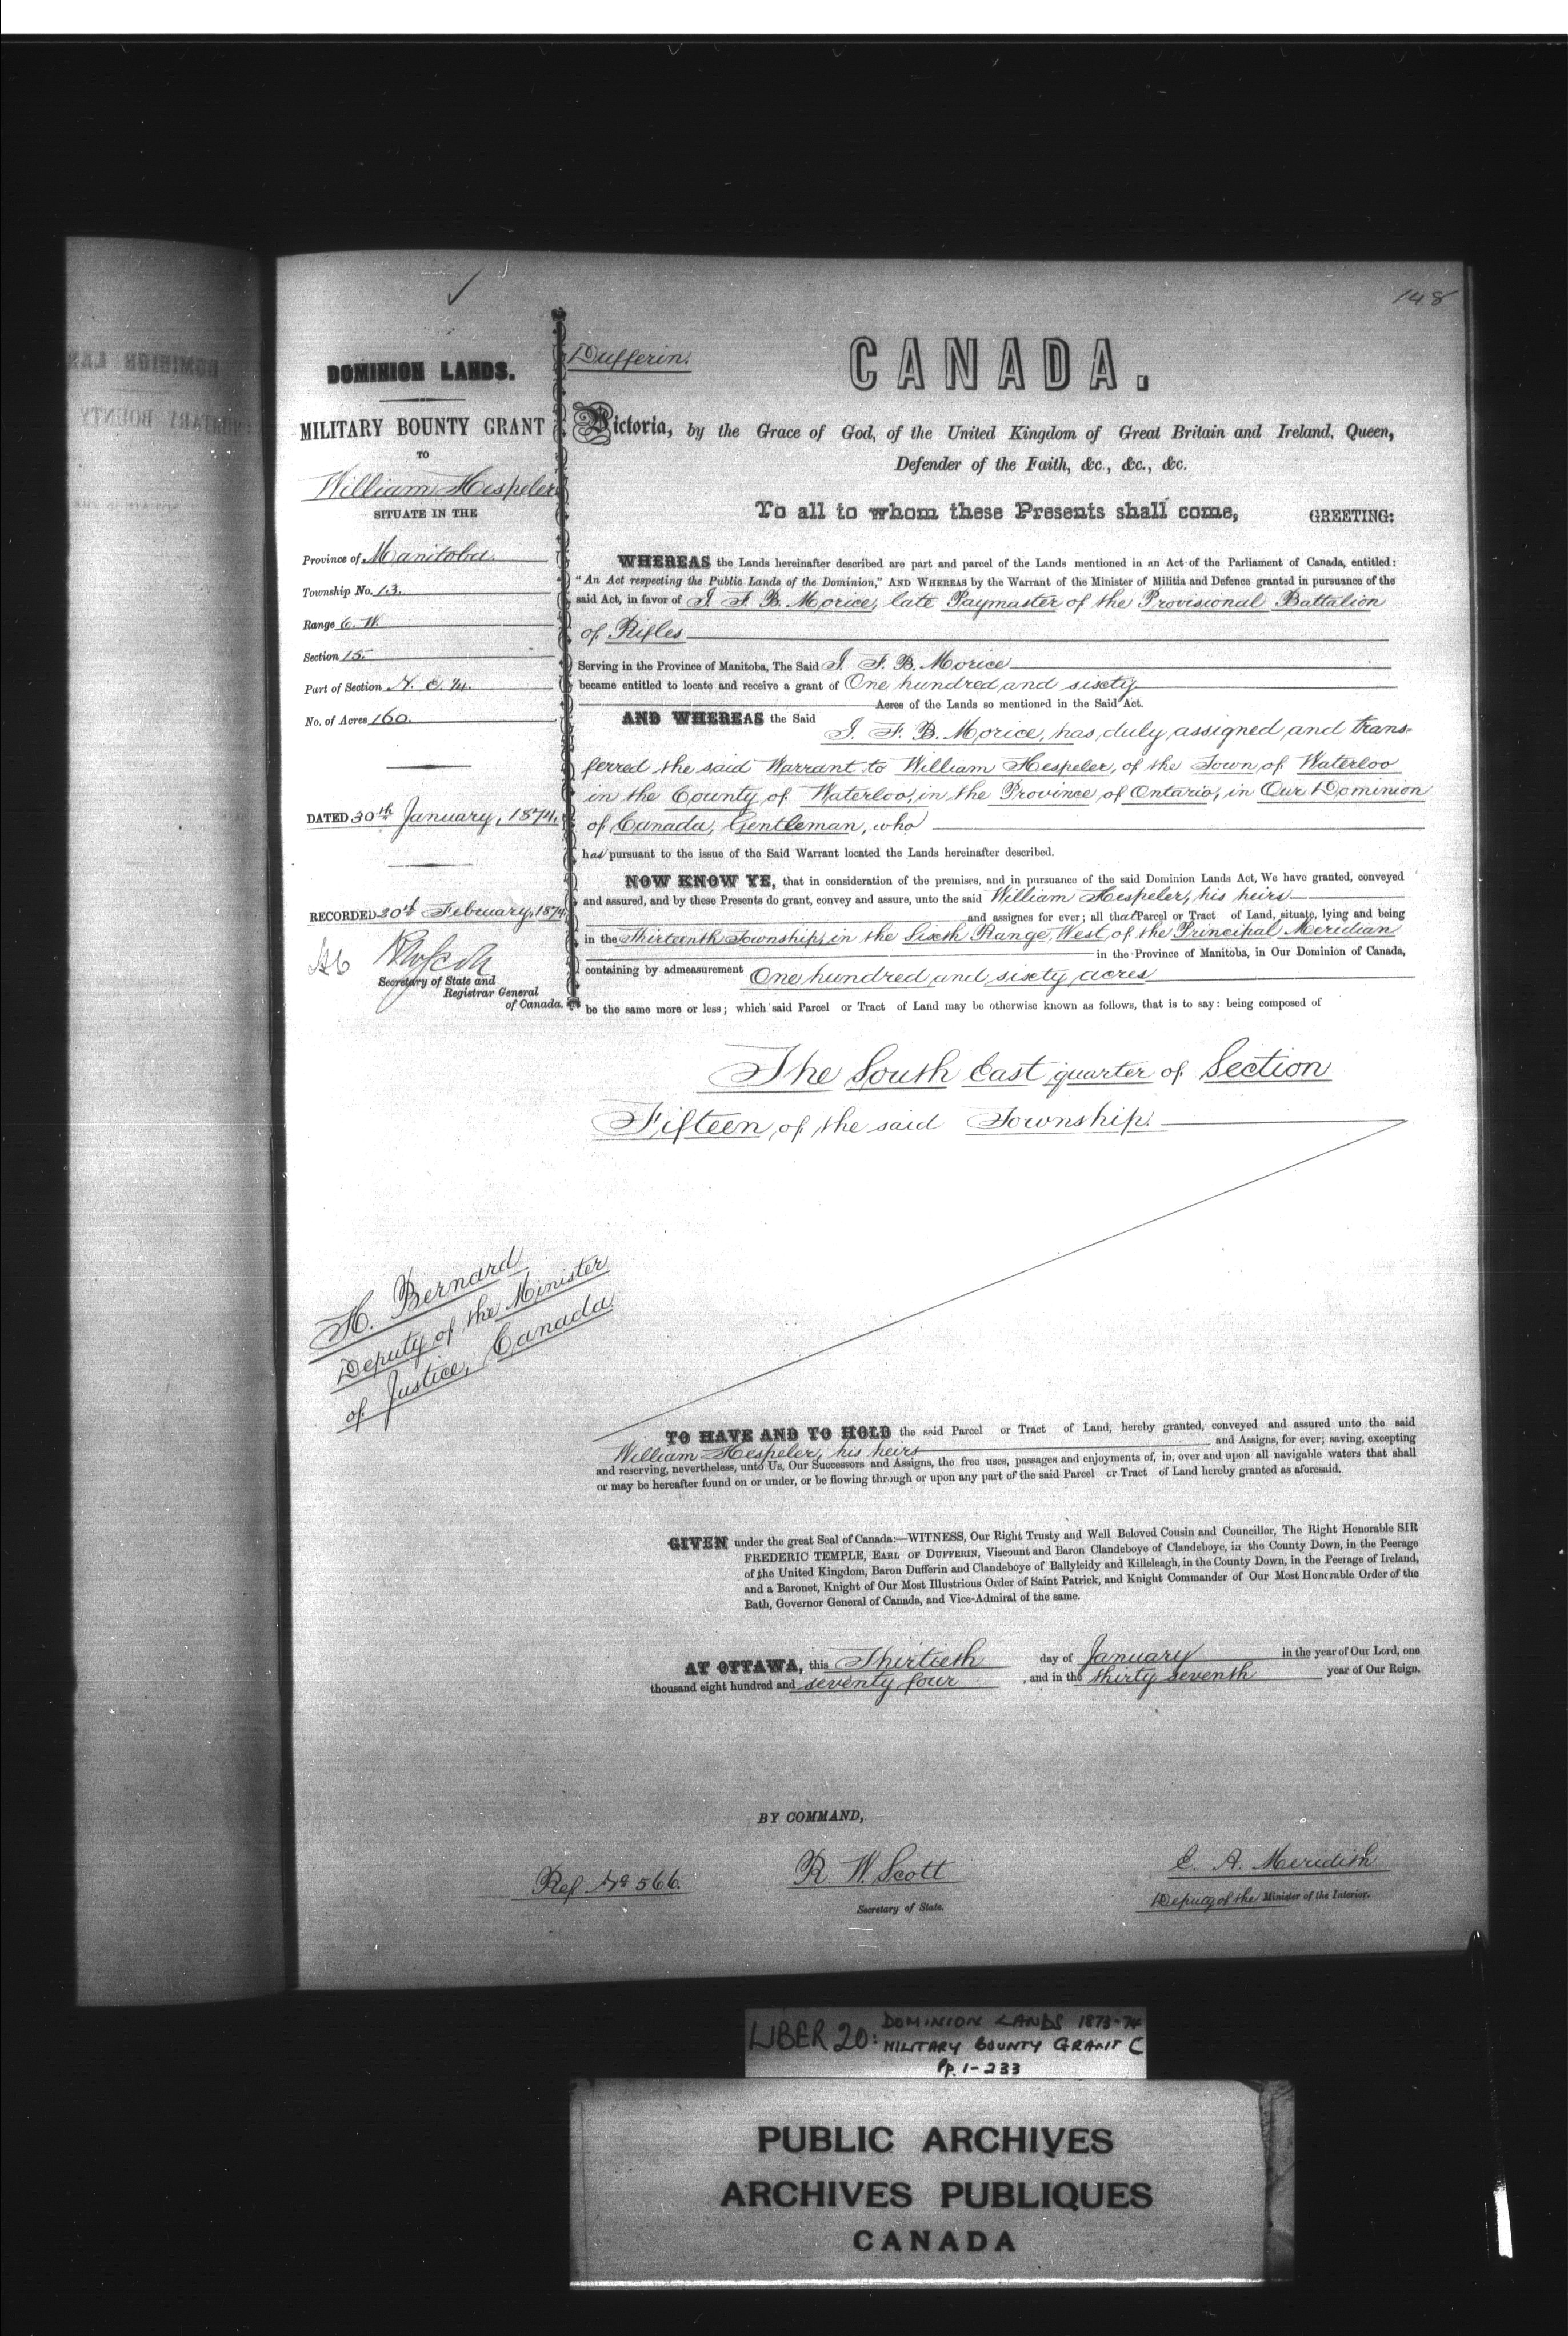 148
DOMINION LANDS.
MILITARY BOUNTY GRANT
TO
William Hespeler
SITUATE IN THE
Province of Manitoba.
Township No. 13.
Range 6. W.
Section 15.
Part of Section N. E. ¼.
No. of Acres 160.
DATED 30th January, 1874.
RECORDED 20th February, 1874
RWScott
Secretary of State and
Registrar General
of Canada.
Dufferin.
CANADA.
Victoria, by the Grace of God, of the United Kingdom of Great Britain and Ireland, Queen,
Defender of the Faith, &c., &c., &c.
To all to whom these Presents shall come, GREETING:
WHEREAS the Lands hereinafter described are part and parcel of the Lands mentioned in an Act of the Parliament of Canada, entitled:
"An Act respecting the Public Lands of the Dominion," AND WHEREAS by the Warrant of the Minister of Militia and Defence granted in pursuance of the
said Act, in favor of J. F. B. Morice, late Paymaster of the Provisional Battalion
of Rifles
Serving in the Province of Manitoba, The Said J. F. B. Morice
became entitled to locate and receive a grant of One hundred and sixty
Acres of the Lands so mentioned in the Said Act.
AND WHEREAS the Said J. F. B. Morice, has duly assigned and trans-
ferred the said Warrant to William Hespeler, of the Town of Waterloo
in the County of Waterloo, in the Province of Ontario, in Our Dominion
of Canada, Gentleman, who
has pursuant to the issue of the Said Warrant located the Lands hereinafter described.
NOW KNOW YE, that in consideration of the premises, and in pursuance of the said Dominion Lands Act, We have granted, conveyed
and assured, and by these Presents do grant, convey and assure, unto the said William Hespeler, his heirs
and assignes for ever; all that Parcel or Tract of Land, situate, lying and being
in the Thirteenth Township, in the Sixth Range, West of the Principal Meridian
in the Province of Manitoba, in Our Dominion of Canada,
containing by admeasurement One hundred and sixty acres
be the same more or less; which said Parcel or Tract of Land may be otherwise known as follows, that is to say: being composed of
The South East quarter of Section
Fifteen, of the said Township.
H. Bernard
Deputy of the Minister
of Justice, Canada
TO HAVE AND TO HOLD the said Parcel or Tract of Land, hereby granted, conveyed and assured unto the said
William Hespeler, his heirs and Assigns, for ever; saving, excepting
and reserving, nevertheless, unto Us, Our Successors and Assigns, the free uses, passages and enjoyments of, in, over and upon all navigable waters that shall
or may be hereafter found on or under, or be flowing through or upon any part of the said Parcel or Tract of Land hereby granted as aforesaid.
GIVEN under the great Seal of Canada:—WITNESS, Our Right Trusty and Well Beloved Cousin and Councillor, The Right Honorable SIR
FREDERIC TEMPLE, EARL OF DUFFERIN, Viscount and Baron Clandeboye of Clandeboye, in the County Down, in the Peerage
of the United Kingdom, Baron Dufferin and Clandeboye of Ballyleidy and Killeleagh, in the County Down, in the Peerage of Ireland,
and a Baronet, Knight of Our Most Illustrious Order of Saint Patrick, and Knight Commander of Our Most Honorable Order of the
Bath, Governor General of Canada, and Vice-Admiral of the same.
AT OTTAWA, this Thirtieth day of January in the year of Our Lord, one
thousand eight hundred and seventy four, and in the thirty seventh year of Our Reign.
BY COMMAND,
Ref. No 566.
R. W. Scott
Secretary of State.
E. A. Meredith
Deputy of the Minister of the Interior.
LIBER 20: DOMINION LANDS 1873-74
MILITARY BOUNTY GRANT C
Pp. 1-233
PUBLIC ARCHIVES
ARCHIVES PUBLIQUES
CANADA